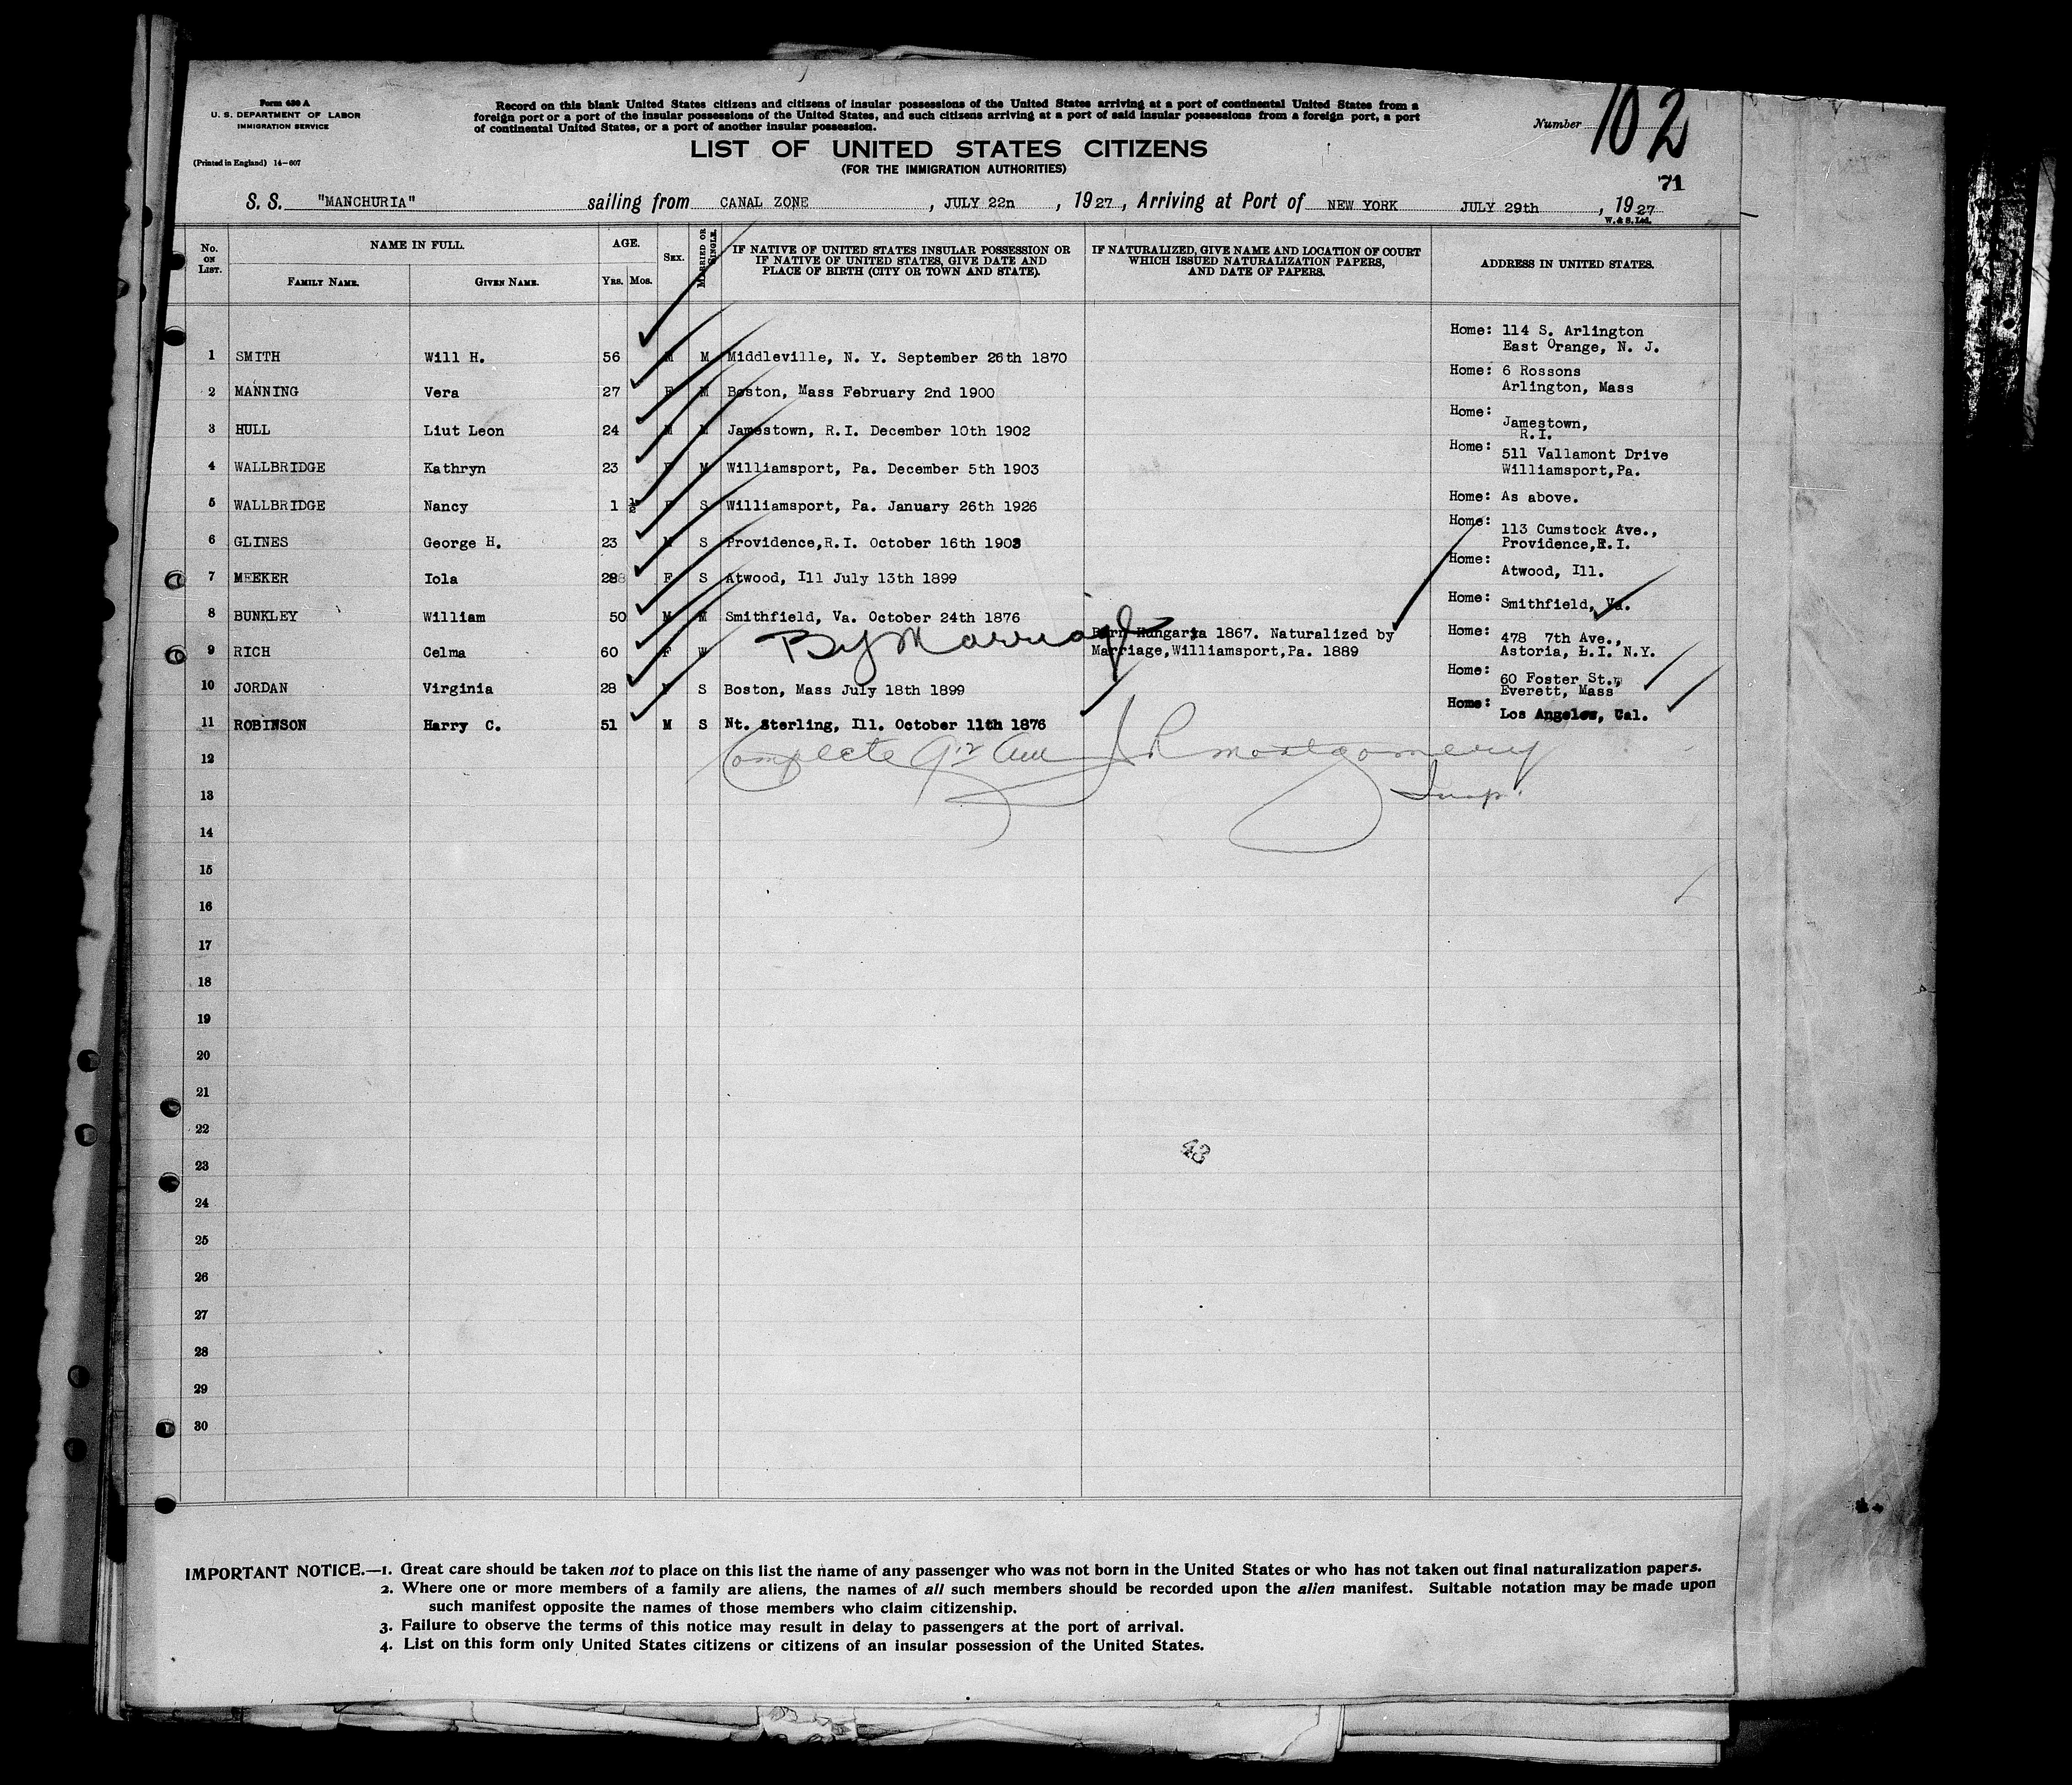 Form 430 A
U. S. DEPARTMENT OF LABOR
IMMIGRATION SERVICE
(Printed in England) 14-607
Record on this blank United States citizens and citizens of insular possessions of the United States arriving at a port of continental United States from a
foreign port or a port of the insular possessions of the United States, and such citizens arriving at a port of said insular possessions from a foreign port, a port
of continental United States, or a port of another insular possession.
Number 102
LIST OF UNITED STATES CITIZENS
(FOR THE IMMIGRATION AUTHORITIES)
71
S. S. "MANCHURIA" sailing from CANAL ZONE, JULY 22n, 1927, Arriving at Port of NEW YORK JULY 29th, 1927
W. & S. Ltd.
No. ON LIST. NAME IN FULL. AGE. SEX. MARRIED OR SINGLE. IF NATIVE OF UNITED STATES INSULAR POSSESSION OR IF NATIVE OF UNITED STATES, GIVE DATE AND PLACE OF BIRTH (CITY OR TOWN AND STATE). IF NATURALIZED, GIVE NAME AND LOCATION OF COURT WHICH ISSUED NATURALIZATION PAPERS, AND DATE OF PAPERS. ADDRESS IN UNITED STATES.
FAMILY NAME. GIVEN NAME. YRS. MOS.
Home: 114 S. Arlington
1 SMITH Will H. 56 M M Middleville, N. Y. September 26th 1870 East Orange, N. J.
Home: 6 Rossons
2 MANNING Vera 27 F M Boston, Mass February 2nd 1900 Arlington, Mass
Home: Jamestown,
3 HULL Liut Leon 24 M M Jamestown, R.I. December 10th 1902 R.I.
Home: 511 Vallamont Drive
4 WALLBRIDGE Kathryn 23 F M Williamsport, Pa. December 5th 1903 Williamsport,Pa.
5 WALLBRIDGE Nancy 1 ½ F S Williamsport, Pa. January 26th 1926 Home: As above.
Home: 113 Cumstock Ave.,
6 GLINES George H. 23 M S Providence,R.I. October 16th 1903 Providence,R.I.
7 MEEKER Iola 28 F S Atwood, Ill July 13th 1899 Home: Atwood, Ill.
8 BUNKLEY William 50 M M Smithfield, Va. October 24th 1876 Home: Smithfield, Va.
By Marriage Born Hungaria 1867. Naturalized by Home: 478 7th Ave.,
9 RICH Celma 60 F W Marriage,Williamsport,Pa. 1889 Astoria, L.I. N.Y.
Home: 60 Foster St.,
10 JORDAN Virginia 28 F S Boston, Mass July 18th 1899 Everett, Mass
11 ROBINSON Harry C. 51 M S Nt. Sterling, Ill. October 11th 1876 Home: Los Angeles, Cal.
12 Complete J R Montgomery
13 Insp.
14
15
16
17
18
19
20
21
22
43
23
24
25
26
27
28
29
30
IMPORTANT NOTICE.—1. Great care should be taken not to place on this list the name of any passenger who was not born in the United States or who has not taken out final naturalization papers.
2. Where one or more members of a family are aliens, the names of all such members should be recorded upon the alien manifest. Suitable notation may be made upon
such manifest opposite the names of those members who claim citizenship.
3. Failure to observe the terms of this notice may result in delay to passengers at the port of arrival.
4. List on this form only United States citizens or citizens of an insular possession of the United States.